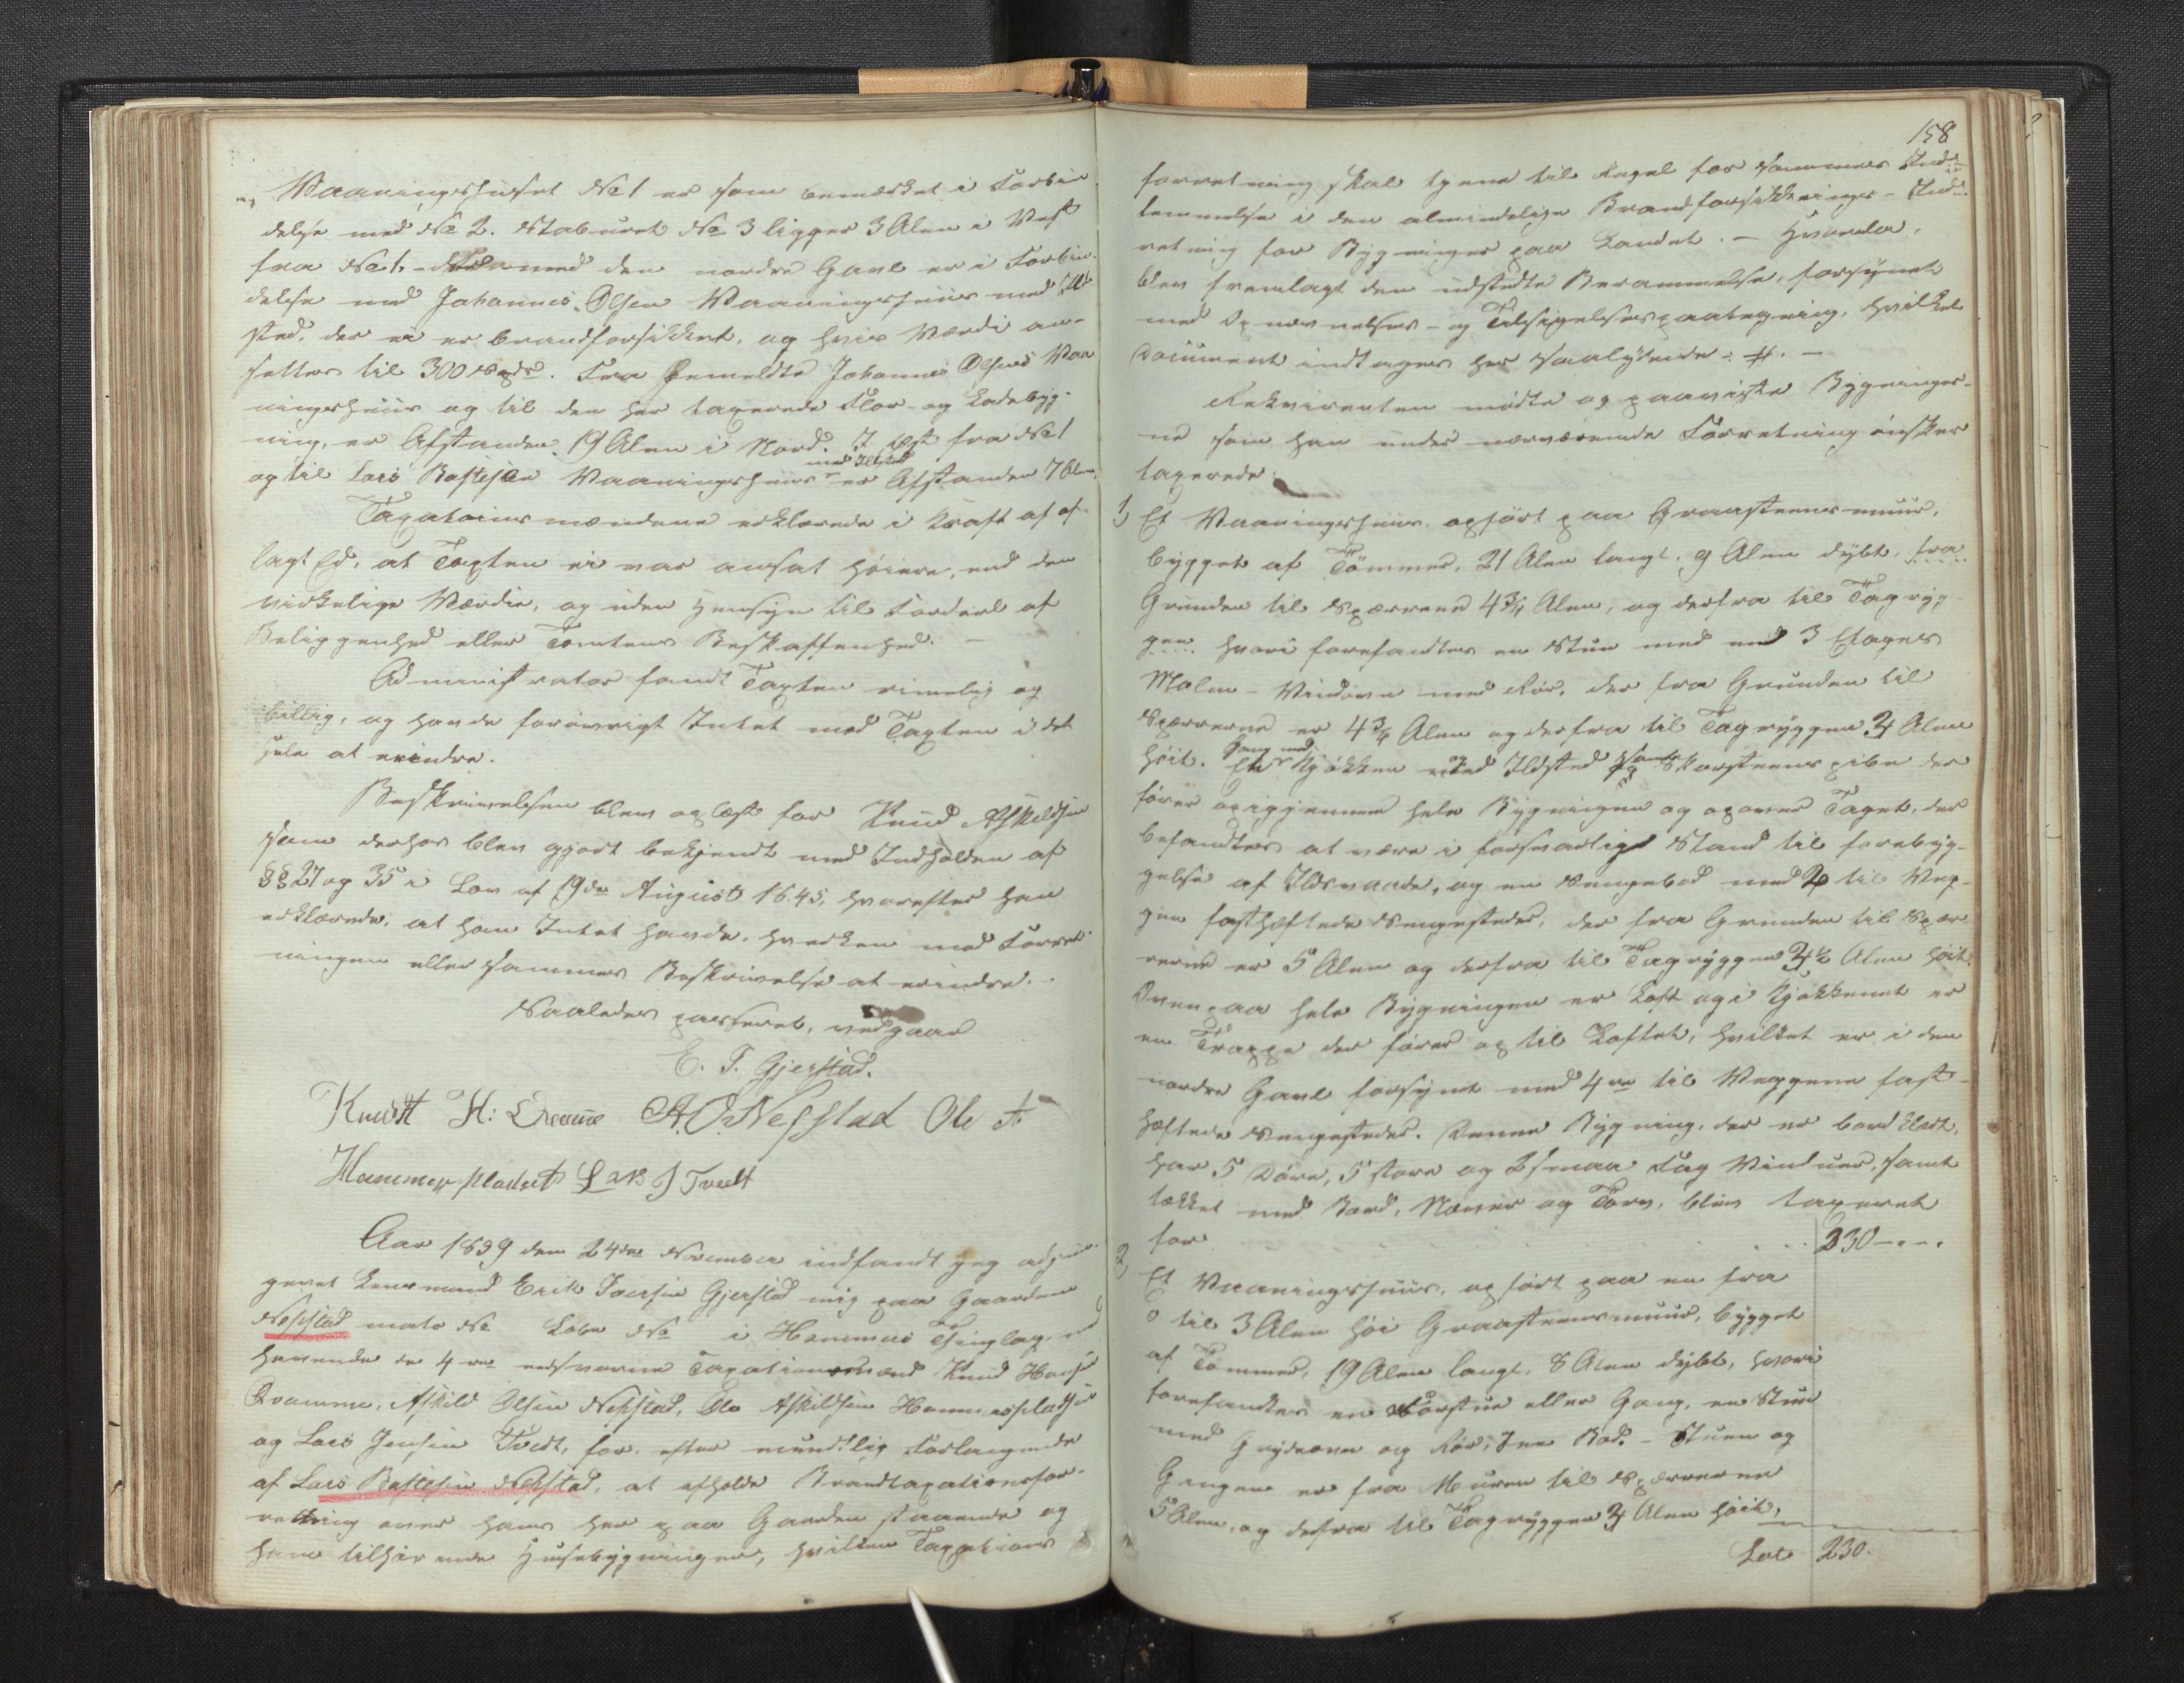 Vaaningshuset No 1 er som bemærket i Forbin
delse med No 2. Staburet No 3 ligger 3 Alen i Vest
fra No 1. med den nordre Gavl er i Forbin-
delse med Johannes Olsens Vaaningshuus med Ild
sted, der ei er brandforsikkret, og hvis Værdi an-
sættes til 300 Spdr. Fra bemeldte Johannes Olsens Vaa
ningshuus og til den her taxerede Flor- og Ladebyg-
ning, er Afstanden 19 Alen i Nord. I Øst fra No 1
med Ildsted
og til Lars Vaaningshuus er Afstanden 7 Alen.
Taxationsmændene erklærede i Kraft af af-
lagt Ed, at Taxten ei var ansat høiere, end den
virkelige Værdie, og uden Hensyn til Fordeel af
Beliggenhed eller Tomtens Beskaffenhed. —
Administrator fandt Taxten rimelig og
billig, og havde forøvrigt Intet med Taxten i det
hele at erindre.
Beskrivelsen blev oplæst for Knud Askildsen
som derhos blev gjort bekjendt med Indholden af
§§ 27 og 35 i Lov af 19de August 1845, hvorefter han
erklærede, at han Intet havde, hverken mod Forret-
ningen eller sammes Beskrivelse at erindre. -
Saaledes passeret, vedgaar
E. I. Gjerstad.
Knudt H: A. O. Nesstad Ole A
Hammerspladset Lars J Tveit
Aar 1859 den 24de November indfandt jeg
Lensmand Erik Gjerstad mig paa Gaarden
Nesstad matr No Løbe No i Hammers Thinglag
havende de 4re eedsvorne Taxationsmænd Knud
Qvamme, Askild Olsen Nesstad, Ole Askildsen Hammerspladsen
og Lars Jensen Tveit, for efter mundtlig Forlangende
af Lars Nesstad, at afholde Brandtaxationsfor-
retning over hans her paa Gaarden staaende og
ham tilhørende Huusebygninger, hvilken Taxations
158
forretning skal tjene til Regel for sammes Ind-
lemmelse i den almindelige Brandforsikkrings-Ind-
retning for Bygninger paa Landet. — Hvorda
blev fremlagt den udstedte Berammelse, forsynet
med Opnævnelses- og Tilsigelsespaategning, hvilket
Document indtages her saalydende: #. —
Rekvirenten mødte og paaviste Bygninger-
ne som han under nærværende Forretning ønsker
taxerede:
1) Et Vaaningshuus, opført paa Graasteensmuur,
bygget af Tømmer, 21 Alen langt, 9 Alen dybt, fra
Grunden til Sperrerne 4 3/4 Alen, og derfra til Tagryg-
gen hvori forefandtes en Stue med en 3 Etages
Malm-Vindovn med Rør, der fra Grunden til
Sperrerne er 4 3/4 Alen og derfra til Tagryggen 3 Alen
Gang med
høit. Et Kjøkken med Ildsted samt Skorsteenspibe der
fører opigjennem hele Bygningen og opover Taget, der
befandtes at være i forsvarlig Stand til forebyg-
gelse af Ildsvaade, og en Sengebod med 2 til Veg-
gen fasthæftede Sengesteder, der fra Grunden til Sper
rerne er 5 Alen og derfra til Tagryggen 3 1/2 Alen høit.
Ovenpaa hele Bygningen er Loft og i Kjøkkenet er
en Trappe der fører op til Loftet, hvilket er i den
nordre Gavl forsynt med 4re til Veggene fast-
hæftede Sengesteder. Denne Bygning, der er bordklædt,
har 5 Døre, 5 store og 2 smaa Fag Vinduer, samt
tækket med Bord, Næver og Torv, blev taxeret
for 230 — . .
2) Et Vaaningshuus, opført paa en fra
0 til 3 Alen høi Graasteensmuur, bygget
af Tømmer, 19 Alen langt, 8 Alen dybt, hvori
forefandtes en Forstue eller Gang, en Stue
med Grydeovn og Rør, I en Bod. - Stuen og
Gangen er fra Muren til Sperrerne
5 Alen, og derfra til Tagryggen 3 Alen høit,
Lat. 230.